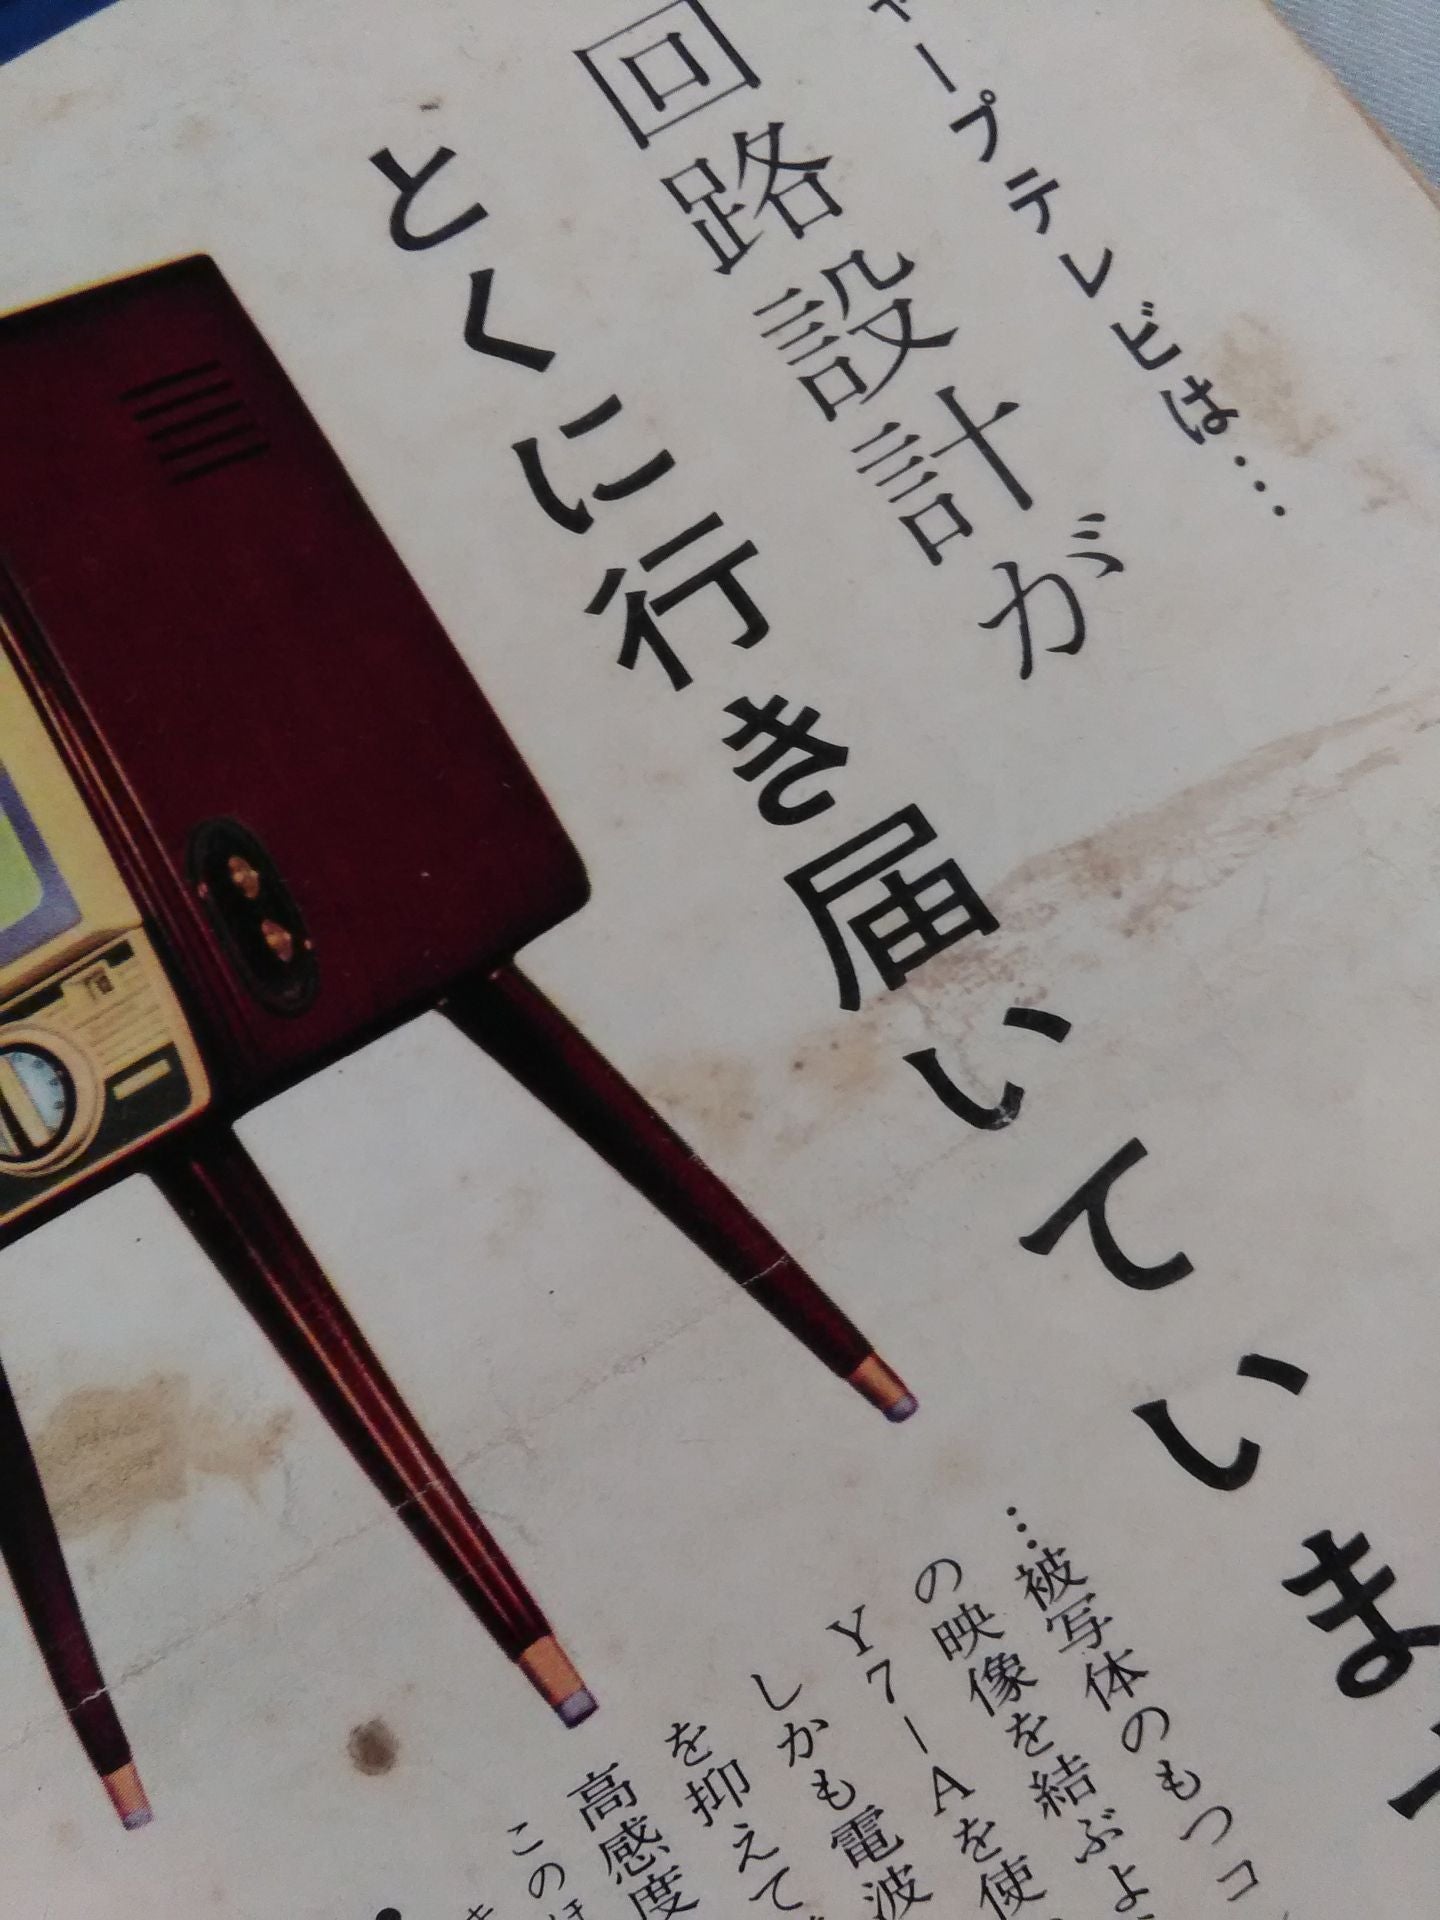 ャープテレビは…
回路設計が
とくに行き届いていま
…被写体のもつコ
の映像を結ぶよ
Y7-Aを使
しかも電波
を抑えて
高感度
このほ